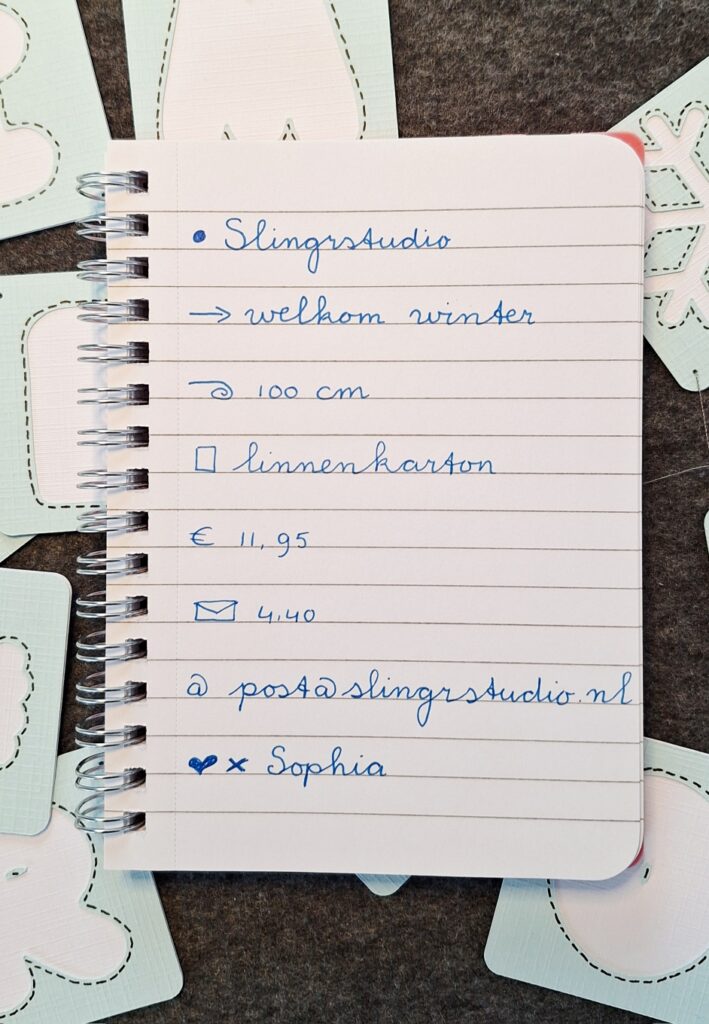 • Slingrstudio
→ welkom winter
100 cm
linnenkarton
€ 11,95
4,40
@ post@slingrstudio.nl
♥ x Sophia